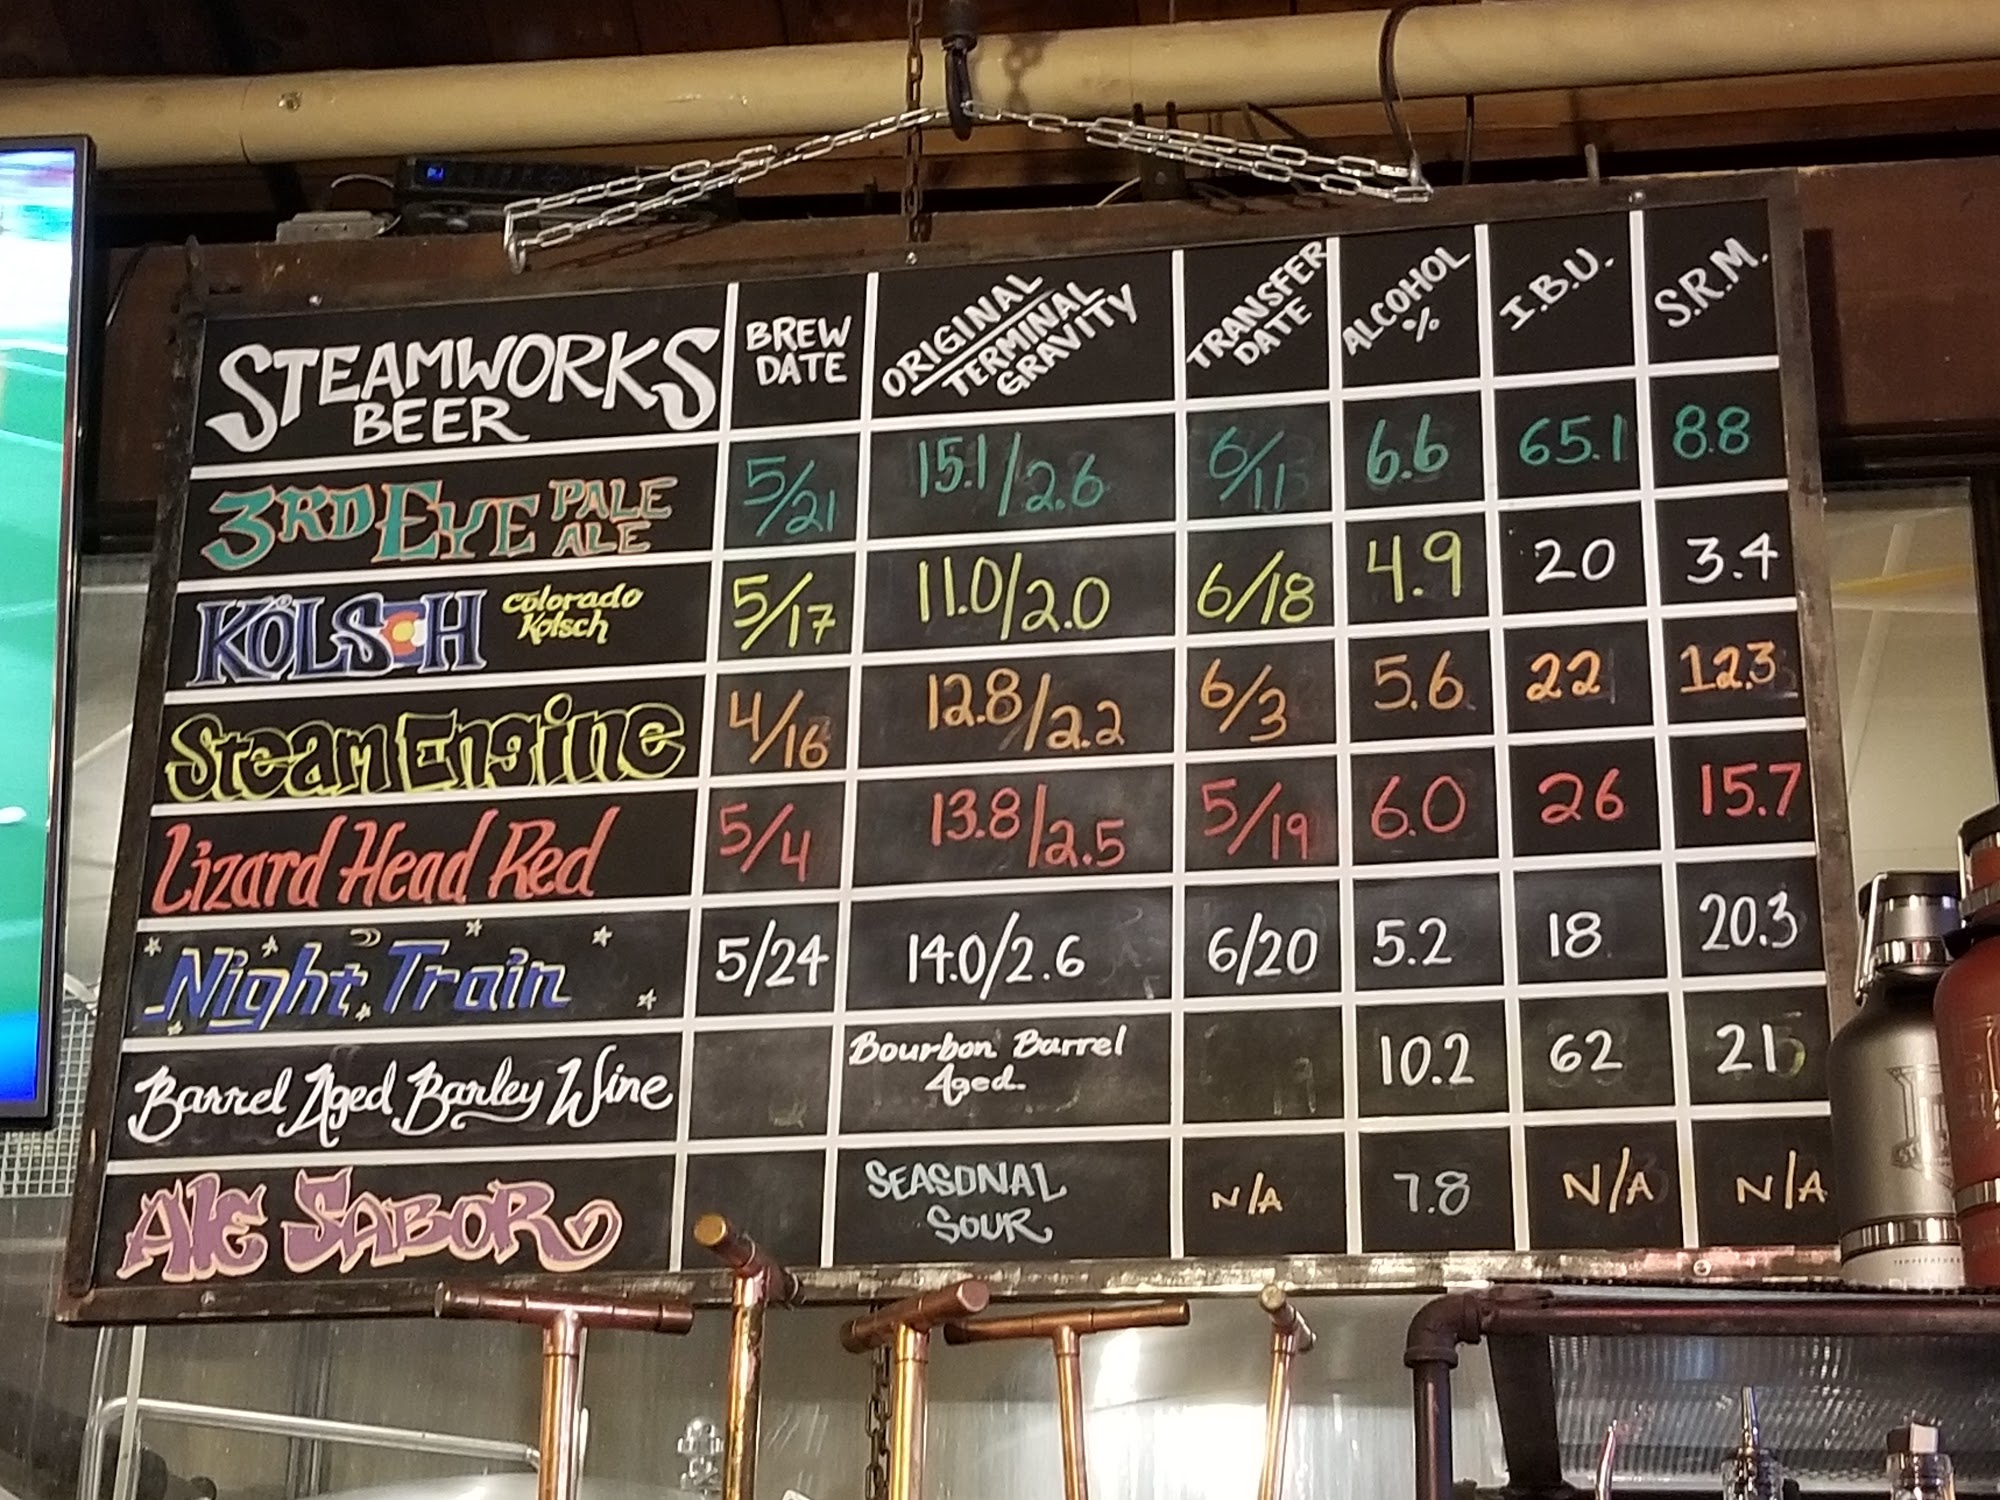 STEAMWORKS
BEER
BREW
DATE
ORIGINAL
TERMINAL
GRAVITY
TRANSFER
DATE
ALCOHOL
%
I.B.U.
S.R.M.
3RD EYE PALE
ALE
5/21
15.1/2.6
6/11
6.6
65.1
8.8
KÖLSCH
Colorado
Kölsch
5/17
11.0/2.0
6/18
4.9
20
3.4
Steam Engine
4/16
12.8/2.2
6/3
5.6
22
12.3
Lizard Head Red
5/4
13.8/2.5
5/19
6.0
26
15.7
Night Train
5/24
14.0/2.6
6/20
5.2
18
20.3
Barrel Aged Barley Wine
Bourbon Barrel
Aged.
10.2
62
21
Ale SABOR
SEASONAL
SOUR
N/A
7.8
N/A
N/A